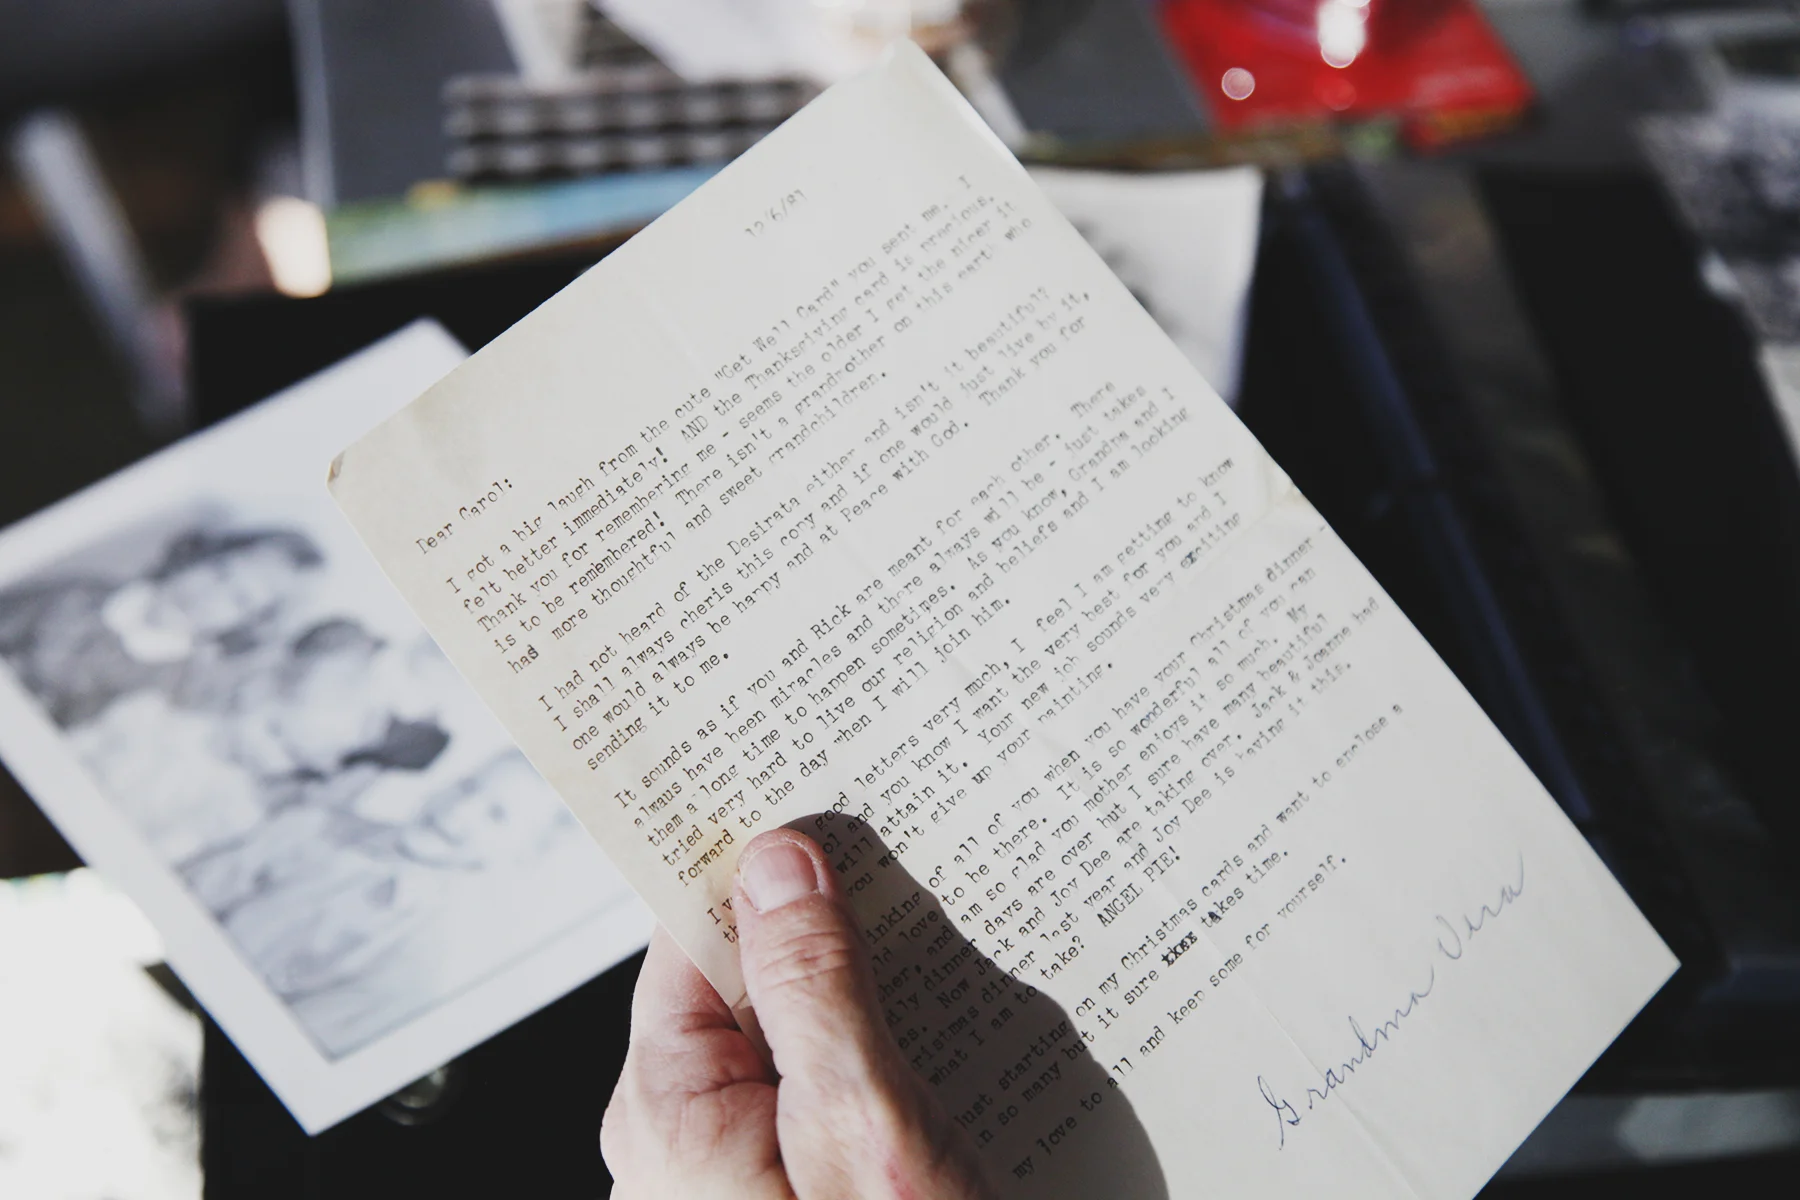 12/6/87
Dear Carol:
I got a big laugh from the cute "Get Well Card" you sent me. I
felt better immediately! AND the Thanksgiving card is precious.
Thank you for remembering me - seems the older I get the nicer it
is to be remembered! There isn't a grandmother on this earth who
had more thoughtful and sweet grandchildren.
I had not heard of the Desirata either and isn't it beautiful?
I shall always cheris this copy and if one would just live by it,
one would always be happy and at Peace with God. Thank you for
sending it to me.
It sounds as if you and Rick are meant for each other. There
always have been miracles and there always will be - just takes
them a long time to happen sometimes. As you know, Grandma and I
tried very hard to live our religion and beliefs and I am looking
forward to the day when I will join him.
I good letters very much, I feel I am getting to know
and you know I want the very best for you and I
will attain it. Your new job sounds very exciting
you won't give up your painting.
of all of you when you have your Christmas dinner
love to be there. It is so wonderful all of you can
and am so glad you mother enjoys it so much. My
dinner days are over but I sure have many beautiful
Now Jack and Joy Dee are taking over. Jack & Joanne had
dinner last year and Joy Dee is having it this.
what I am to take? ANGEL PIE!
just starting on my Christmas cards and want to enclose a
so many but it sure takes time.
my love to all and keep some for yourself.
Grandma Vera